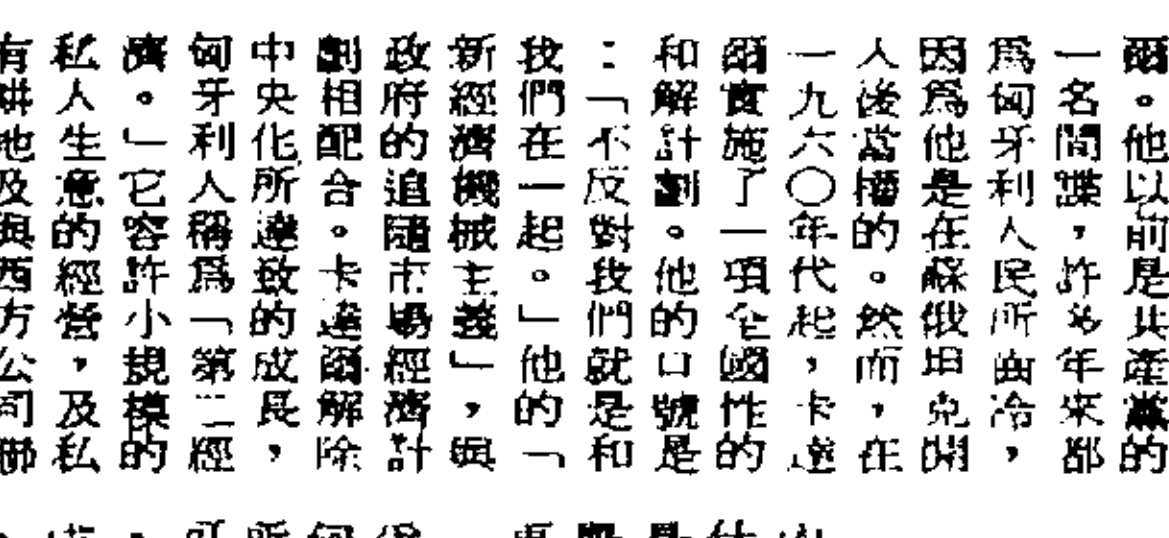 爾。他以前是共產黨的
一名間諜，許多年來都
爲匈牙利人民所齒冷，
因爲他是在蘇俄坦克開
人後當權的。然而，在
一九六〇年代起，卡達
爾實施了一項全國性的
和解計劃。他的口號是
：「不反對我們就是和
我們在一起。」他的「
新經濟機械主義」，與
政府的追隨市場經濟計
劃相配合。卡達爾解除
中央化所達致的成長，
匈牙利人稱爲「第二經
濟。」它容許小規模的
私人生意的經營，及私
有耕地及與西方公司聯